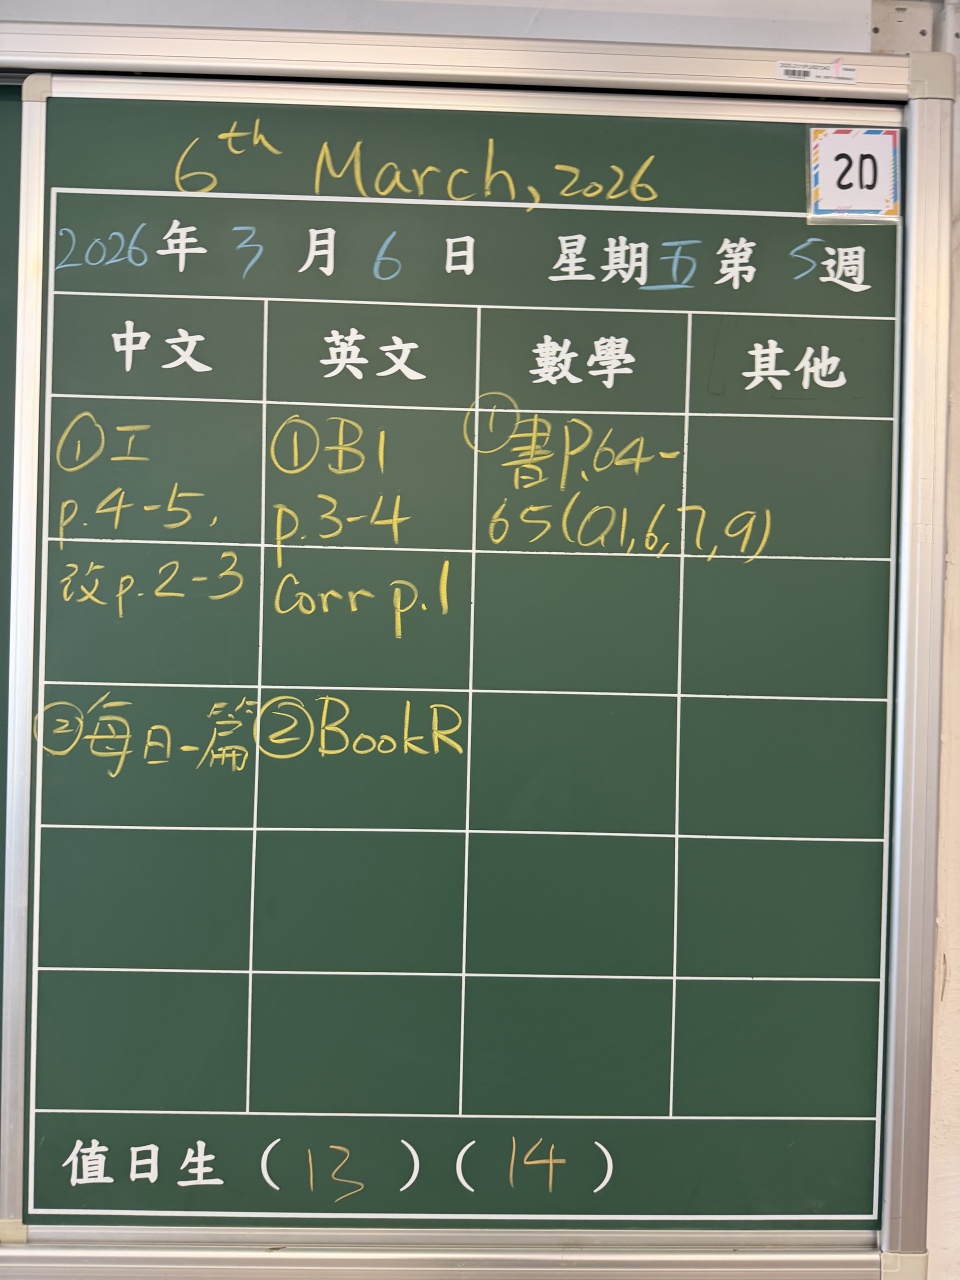 6th March, 2026
2D
2026年3月6日 星期五第5週
中文 英文 數學 其他
①工
p.4-5,
改p.2-3
②每日一篇
①B1
p.3-4
Corr p.1
②BookR
①書P.64-
65(Q1,6,7,9)
值日生(13)(14)